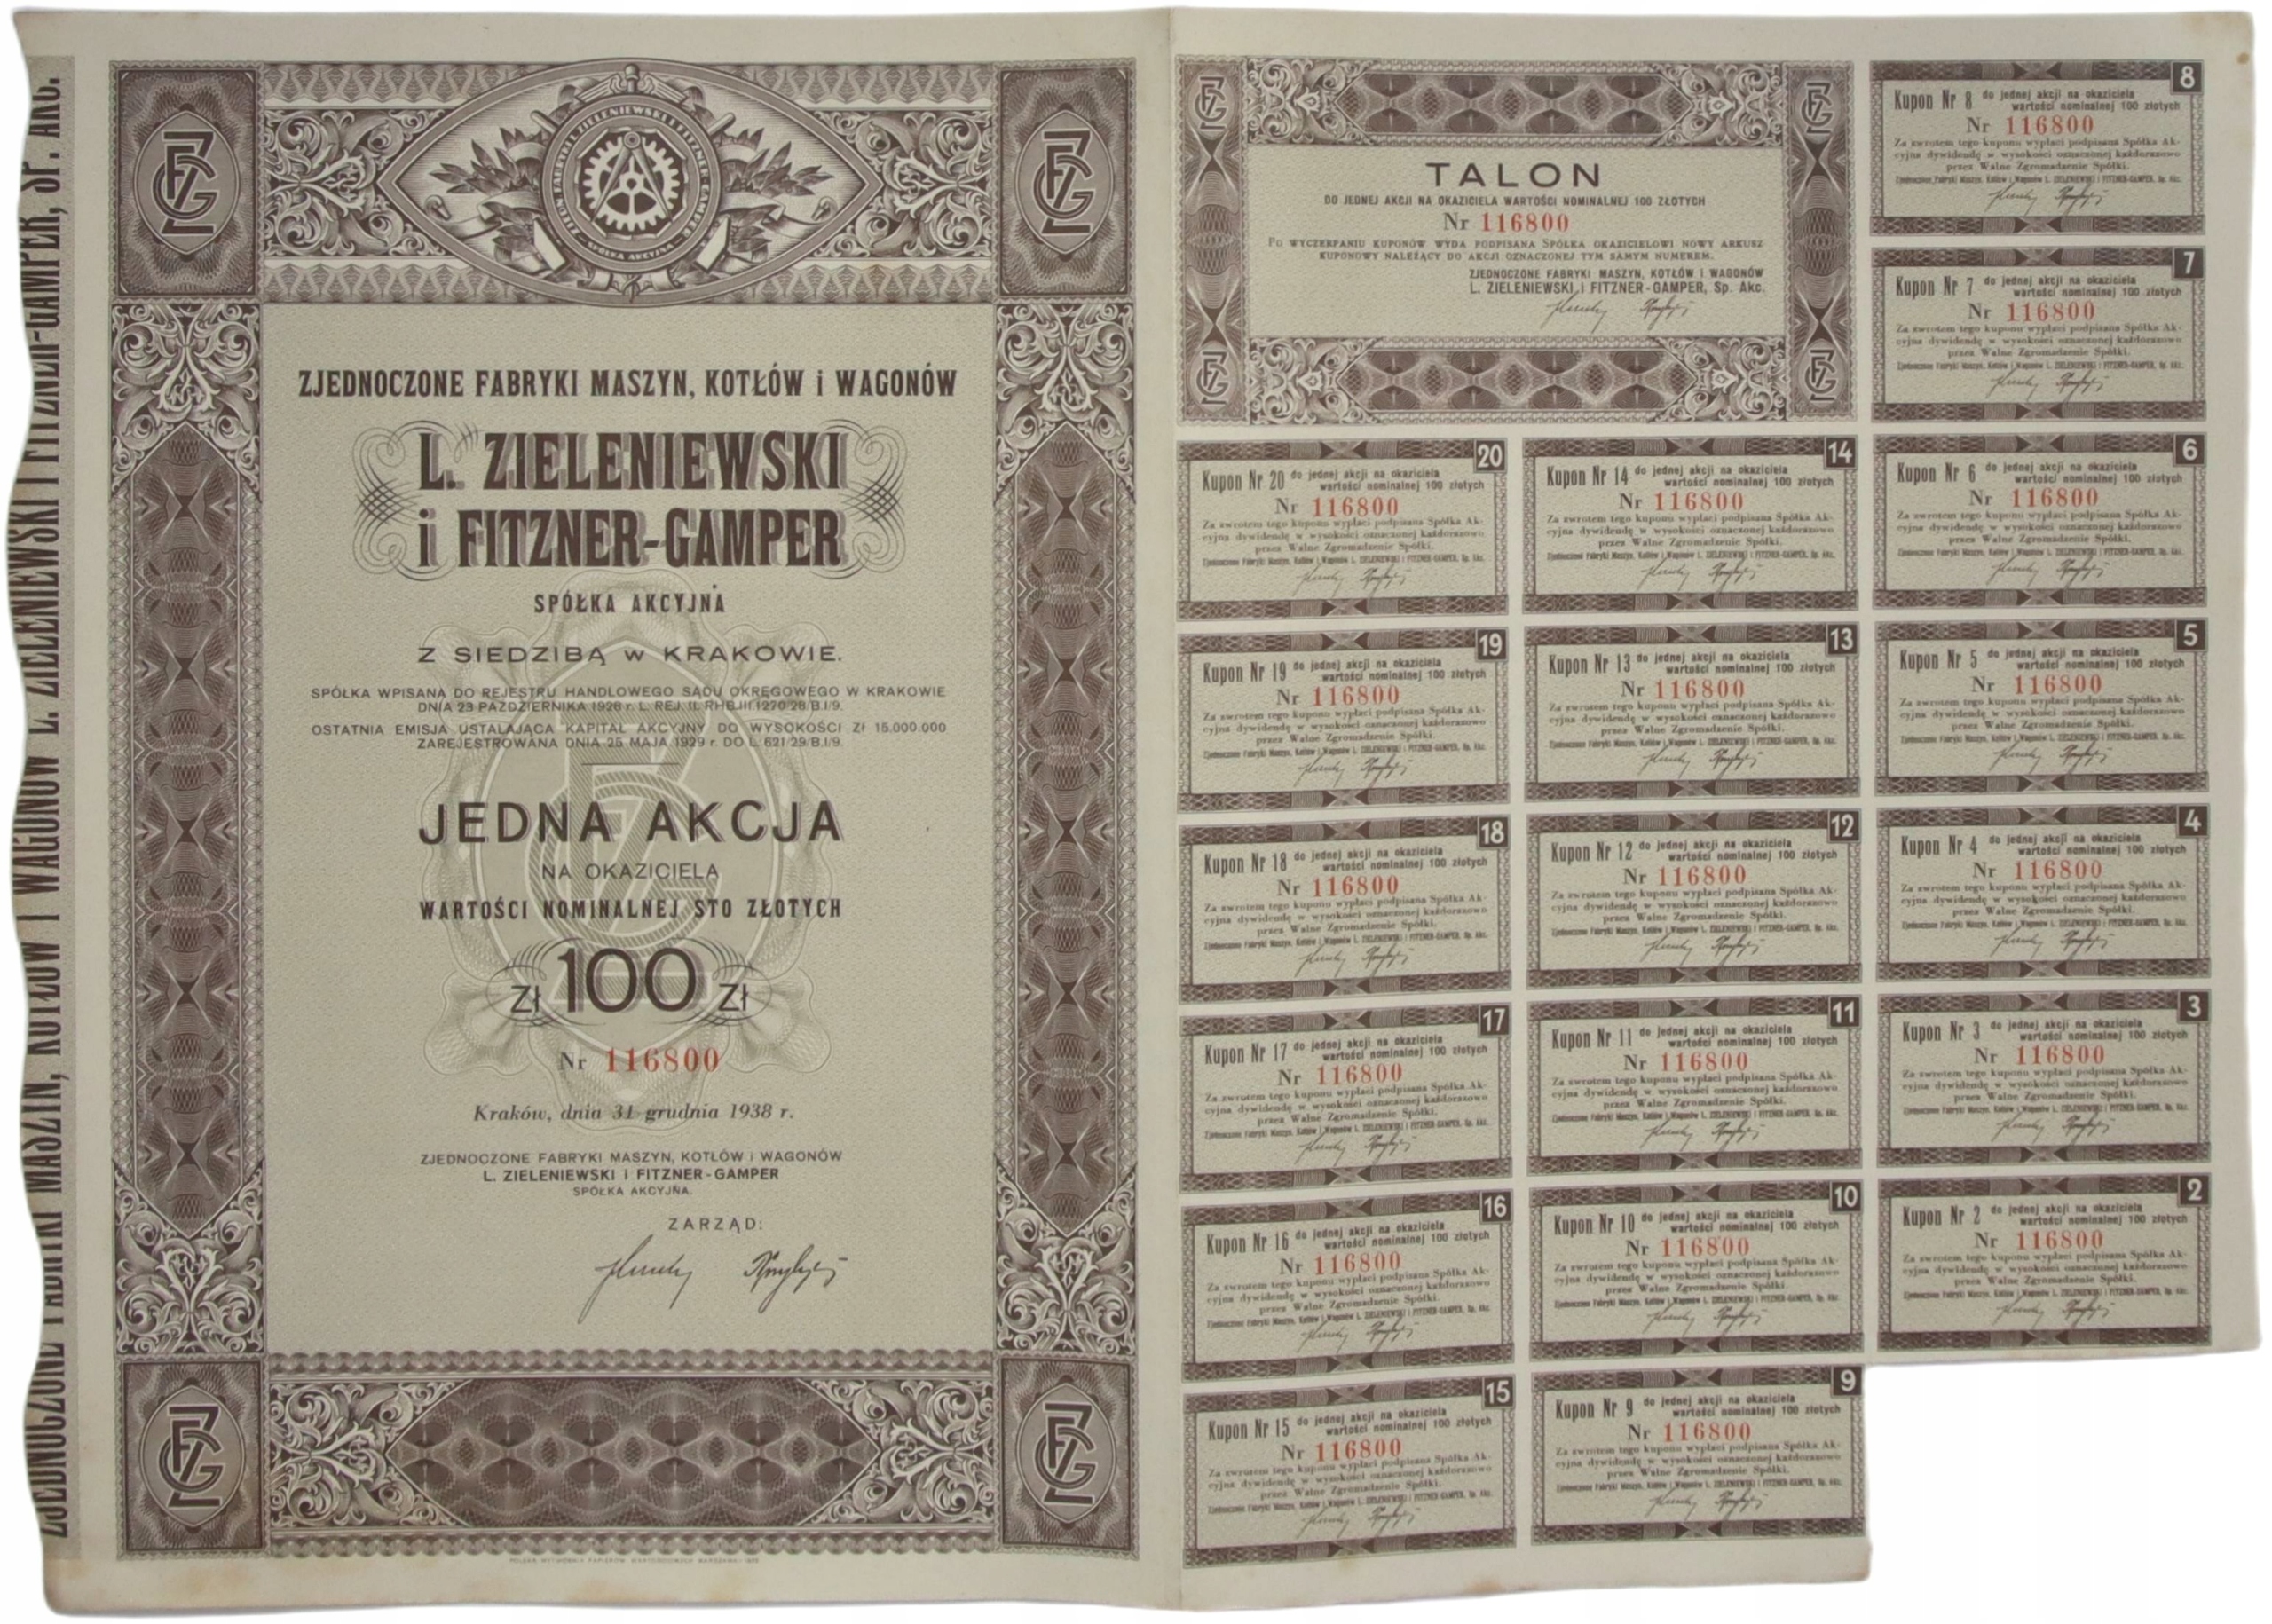 ZJEDNOCZONE FABRYKI MASZYN, KOTŁÓW I WAGONÓW L. ZIELENIEWSKI I FITZNER-GAMPER, SP. AKC.
ZJEDN. FABRYKI L. ZIELENIEWSKI I FITZNER GAMPER
SPÓŁKA AKCYJNA
ZJEDNOCZONE FABRYKI MASZYN, KOTŁÓW i WAGONÓW
L. ZIELENIEWSKI
i FITZNER-GAMPER
SPÓŁKA AKCYJNA
Z SIEDZIBĄ w KRAKOWIE.
SPÓŁKA WPISANA DO REJESTRU HANDLOWEGO SĄDU OKRĘGOWEGO W KRAKOWIE
DNIA 23 PAŹDZIERNIKA 1928 r. L. REJ. II. RHB.III.1270/28/B.I/9.
OSTATNIA EMISJA USTALAJĄCA KAPITAŁ AKCYJNY DO WYSOKOŚCI Zł 15.000.000
ZAREJESTROWANA DNIA 25 MAJA 1929 r. DO L. 621/29/B.I/9.
JEDNA AKCJA
NA OKAZICIELA
WARTOŚCI NOMINALNEJ STO ZŁOTYCH
Zł 100 Zł
Nr 116800
Kraków, dnia 31 grudnia 1938 r.
ZJEDNOCZONE FABRYKI MASZYN, KOTŁÓW i WAGONÓW
L. ZIELENIEWSKI i FITZNER-GAMPER
SPÓŁKA AKCYJNA.
ZARZĄD:
POLSKA WYTWÓRNIA PAPIERÓW WARTOŚCIOWYCH WARSZAWA
TALON
DO JEDNEJ AKCJI NA OKAZICIELA WARTOŚCI NOMINALNEJ 100 ZŁOTYCH
Nr 116800
PO WYCZERPANIU KUPONÓW WYDA PODPISANA SPÓŁKA OKAZICIELOWI NOWY ARKUSZ
KUPONOWY NALEŻĄCY DO AKCJI OZNACZONEJ TYM SAMYM NUMEREM.
ZJEDNOCZONE FABRYKI MASZYN, KOTŁÓW I WAGONÓW
L. ZIELENIEWSKI I FITZNER-GAMPER, Sp. Akc.
20
Kupon Nr 20 do jednej akcji na okaziciela
wartości nominalnej 100 złotych
Nr 116800
Za zwrotem tego kuponu wypłaci podpisana Spółka Ak-
cyjna dywidendę w wysokości oznaczonej każdorazowo
przez Walne Zgromadzenie Spółki.
Zjednoczone Fabryki Maszyn, Kotłów i Wagonów L. ZIELENIEWSKI i FITZNER-GAMPER, Sp. Akc.
19
Kupon Nr 19 do jednej akcji na okaziciela
wartości nominalnej 100 złotych
Nr 116800
Za zwrotem tego kuponu wypłaci podpisana Spółka Ak-
cyjna dywidendę w wysokości oznaczonej każdorazowo
przez Walne Zgromadzenie Spółki.
Zjednoczone Fabryki Maszyn, Kotłów i Wagonów L. ZIELENIEWSKI i FITZNER-GAMPER, Sp. Akc.
18
Kupon Nr 18 do jednej akcji na okaziciela
wartości nominalnej 100 złotych
Nr 116800
Za zwrotem tego kuponu wypłaci podpisana Spółka Ak-
cyjna dywidendę w wysokości oznaczonej każdorazowo
przez Walne Zgromadzenie Spółki.
Zjednoczone Fabryki Maszyn, Kotłów i Wagonów L. ZIELENIEWSKI i FITZNER-GAMPER, Sp. Akc.
17
Kupon Nr 17 do jednej akcji na okaziciela
wartości nominalnej 100 złotych
Nr 116800
Za zwrotem tego kuponu wypłaci podpisana Spółka Ak-
cyjna dywidendę w wysokości oznaczonej każdorazowo
przez Walne Zgromadzenie Spółki.
Zjednoczone Fabryki Maszyn, Kotłów i Wagonów L. ZIELENIEWSKI i FITZNER-GAMPER, Sp. Akc.
16
Kupon Nr 16 do jednej akcji na okaziciela
wartości nominalnej 100 złotych
Nr 116800
Za zwrotem tego kuponu wypłaci podpisana Spółka Ak-
cyjna dywidendę w wysokości oznaczonej każdorazowo
przez Walne Zgromadzenie Spółki.
Zjednoczone Fabryki Maszyn, Kotłów i Wagonów L. ZIELENIEWSKI i FITZNER-GAMPER, Sp. Akc.
15
Kupon Nr 15 do jednej akcji na okaziciela
wartości nominalnej 100 złotych
Nr 116800
Za zwrotem tego kuponu wypłaci podpisana Spółka Ak-
cyjna dywidendę w wysokości oznaczonej każdorazowo
przez Walne Zgromadzenie Spółki.
Zjednoczone Fabryki Maszyn, Kotłów i Wagonów L. ZIELENIEWSKI i FITZNER-GAMPER, Sp. Akc.
14
Kupon Nr 14 do jednej akcji na okaziciela
wartości nominalnej 100 złotych
Nr 116800
Za zwrotem tego kuponu wypłaci podpisana Spółka Ak-
cyjna dywidendę w wysokości oznaczonej każdorazowo
przez Walne Zgromadzenie Spółki.
Zjednoczone Fabryki Maszyn, Kotłów i Wagonów L. ZIELENIEWSKI i FITZNER-GAMPER, Sp. Akc.
13
Kupon Nr 13 do jednej akcji na okaziciela
wartości nominalnej 100 złotych
Nr 116800
Za zwrotem tego kuponu wypłaci podpisana Spółka Ak-
cyjna dywidendę w wysokości oznaczonej każdorazowo
przez Walne Zgromadzenie Spółki.
Zjednoczone Fabryki Maszyn, Kotłów i Wagonów L. ZIELENIEWSKI i FITZNER-GAMPER, Sp. Akc.
12
Kupon Nr 12 do jednej akcji na okaziciela
wartości nominalnej 100 złotych
Nr 116800
Za zwrotem tego kuponu wypłaci podpisana Spółka Ak-
cyjna dywidendę w wysokości oznaczonej każdorazowo
przez Walne Zgromadzenie Spółki.
Zjednoczone Fabryki Maszyn, Kotłów i Wagonów L. ZIELENIEWSKI i FITZNER-GAMPER, Sp. Akc.
11
Kupon Nr 11 do jednej akcji na okaziciela
wartości nominalnej 100 złotych
Nr 116800
Za zwrotem tego kuponu wypłaci podpisana Spółka Ak-
cyjna dywidendę w wysokości oznaczonej każdorazowo
przez Walne Zgromadzenie Spółki.
Zjednoczone Fabryki Maszyn, Kotłów i Wagonów L. ZIELENIEWSKI i FITZNER-GAMPER, Sp. Akc.
10
Kupon Nr 10 do jednej akcji na okaziciela
wartości nominalnej 100 złotych
Nr 116800
Za zwrotem tego kuponu wypłaci podpisana Spółka Ak-
cyjna dywidendę w wysokości oznaczonej każdorazowo
przez Walne Zgromadzenie Spółki.
Zjednoczone Fabryki Maszyn, Kotłów i Wagonów L. ZIELENIEWSKI i FITZNER-GAMPER, Sp. Akc.
9
Kupon Nr 9 do jednej akcji na okaziciela
wartości nominalnej 100 złotych
Nr 116800
Za zwrotem tego kuponu wypłaci podpisana Spółka Ak-
cyjna dywidendę w wysokości oznaczonej każdorazowo
przez Walne Zgromadzenie Spółki.
Zjednoczone Fabryki Maszyn, Kotłów i Wagonów L. ZIELENIEWSKI i FITZNER-GAMPER, Sp. Akc.
8
Kupon Nr 8 do jednej akcji na okaziciela
wartości nominalnej 100 złotych
Nr 116800
Za zwrotem tego kuponu wypłaci podpisana Spółka Ak-
cyjna dywidendę w wysokości oznaczonej każdorazowo
przez Walne Zgromadzenie Spółki.
Zjednoczone Fabryki Maszyn, Kotłów i Wagonów L. ZIELENIEWSKI i FITZNER-GAMPER, Sp. Akc.
7
Kupon Nr 7 do jednej akcji na okaziciela
wartości nominalnej 100 złotych
Nr 116800
Za zwrotem tego kuponu wypłaci podpisana Spółka Ak-
cyjna dywidendę w wysokości oznaczonej każdorazowo
przez Walne Zgromadzenie Spółki.
Zjednoczone Fabryki Maszyn, Kotłów i Wagonów L. ZIELENIEWSKI i FITZNER-GAMPER, Sp. Akc.
6
Kupon Nr 6 do jednej akcji na okaziciela
wartości nominalnej 100 złotych
Nr 116800
Za zwrotem tego kuponu wypłaci podpisana Spółka Ak-
cyjna dywidendę w wysokości oznaczonej każdorazowo
przez Walne Zgromadzenie Spółki.
Zjednoczone Fabryki Maszyn, Kotłów i Wagonów L. ZIELENIEWSKI i FITZNER-GAMPER, Sp. Akc.
5
Kupon Nr 5 do jednej akcji na okaziciela
wartości nominalnej 100 złotych
Nr 116800
Za zwrotem tego kuponu wypłaci podpisana Spółka Ak-
cyjna dywidendę w wysokości oznaczonej każdorazowo
przez Walne Zgromadzenie Spółki.
Zjednoczone Fabryki Maszyn, Kotłów i Wagonów L. ZIELENIEWSKI i FITZNER-GAMPER, Sp. Akc.
4
Kupon Nr 4 do jednej akcji na okaziciela
wartości nominalnej 100 złotych
Nr 116800
Za zwrotem tego kuponu wypłaci podpisana Spółka Ak-
cyjna dywidendę w wysokości oznaczonej każdorazowo
przez Walne Zgromadzenie Spółki.
Zjednoczone Fabryki Maszyn, Kotłów i Wagonów L. ZIELENIEWSKI i FITZNER-GAMPER, Sp. Akc.
3
Kupon Nr 3 do jednej akcji na okaziciela
wartości nominalnej 100 złotych
Nr 116800
Za zwrotem tego kuponu wypłaci podpisana Spółka Ak-
cyjna dywidendę w wysokości oznaczonej każdorazowo
przez Walne Zgromadzenie Spółki.
Zjednoczone Fabryki Maszyn, Kotłów i Wagonów L. ZIELENIEWSKI i FITZNER-GAMPER, Sp. Akc.
2
Kupon Nr 2 do jednej akcji na okaziciela
wartości nominalnej 100 złotych
Nr 116800
Za zwrotem tego kuponu wypłaci podpisana Spółka Ak-
cyjna dywidendę w wysokości oznaczonej każdorazowo
przez Walne Zgromadzenie Spółki.
Zjednoczone Fabryki Maszyn, Kotłów i Wagonów L. ZIELENIEWSKI i FITZNER-GAMPER, Sp. Akc.